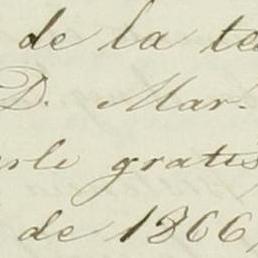 de la te
D. Mar.
rle gratis
de 1866,